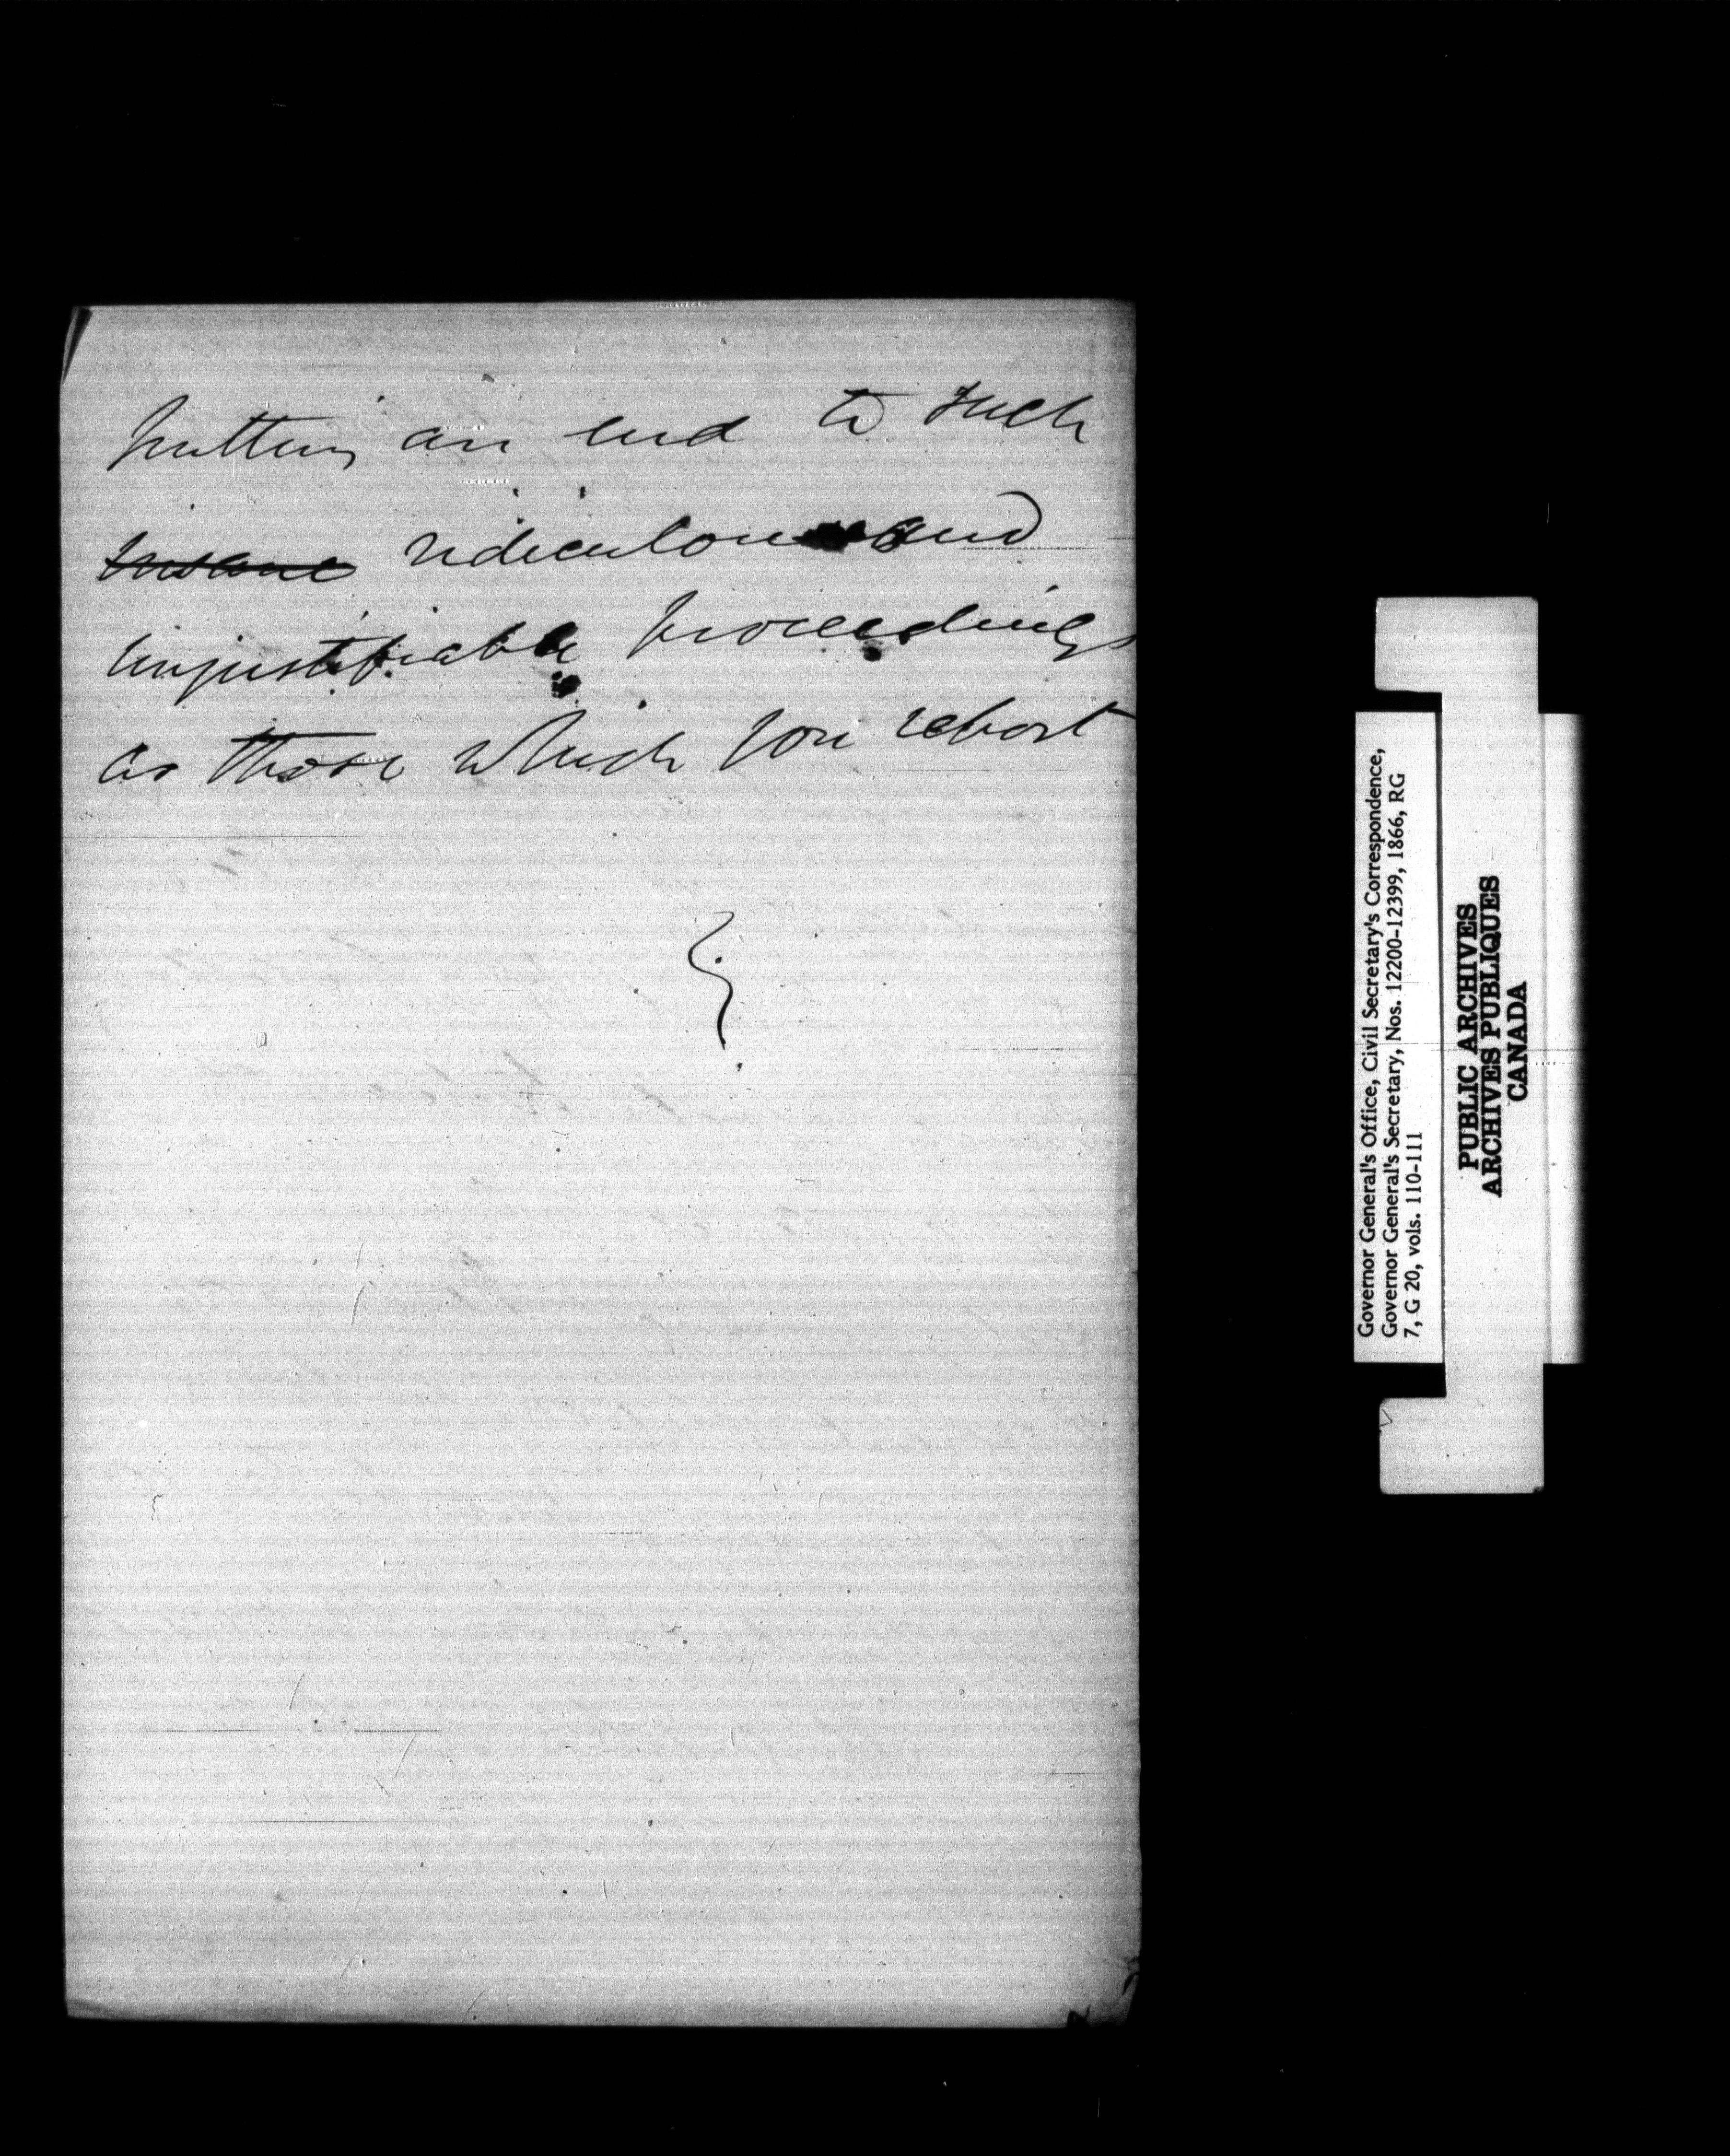 putting an end to such
insane ridiculous and
unjustifiable proceedings
as those which you report
Governor General's Office, Civil Secretary's Correspondence,
Governor General's Secretary, Nos. 12200-12399, 1866, RG
7, G 20, vols. 110-111
PUBLIC ARCHIVES
ARCHIVES PUBLIQUES
CANADA